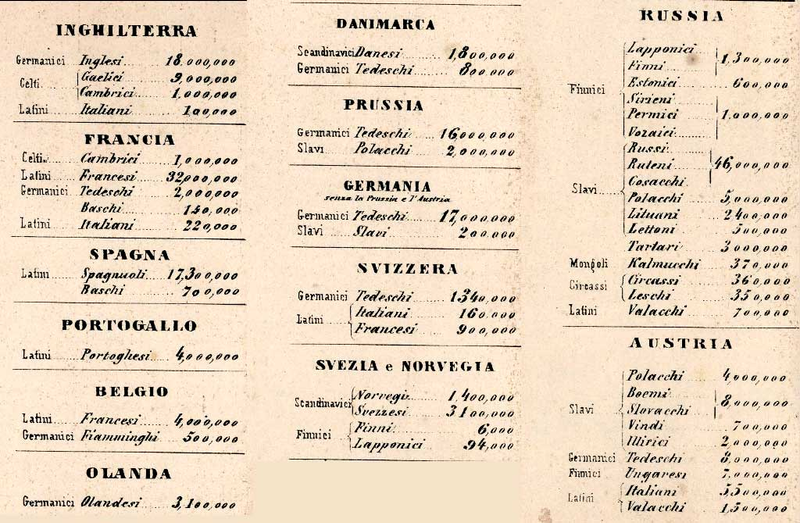 INGHILTERRA
Germanici Inglesi 18,000,000
Celti Gaelici 9,000,000
Cambrici 1,000,000
Latini Italiani 100,000
FRANCIA
Celti Cambrici 1,000,000
Latini Francesi 32,000,000
Germanici Tedeschi 2,000,000
Baschi 140,000
Latini Italiani 220,000
SPAGNA
Latini Spagnuoli 17,300,000
Baschi 700,000
PORTOGALLO
Latini Portoghesi 4,000,000
BELGIO
Latini Francesi 4,000,000
Germanici Fiamminghi 500,000
OLANDA
Germanici Olandesi 3,100,000
DANIMARCA
Scandinavici Danesi 1,800,000
Germanici Tedeschi 800,000
PRUSSIA
Germanici Tedeschi 16,000,000
Slavi Polacchi 2,000,000
GERMANIA
senza la Prussia e l'Austria
Germanici Tedeschi 17,000,000
Slavi Slavi 200,000
SVIZZERA
Germanici Tedeschi 1340,000
Latini Italiani 160,000
Francesi 900,000
SVEZIA e NORVEGIA
Scandinavici Norvegi 1,400,000
Svezzesi 3100,000
Finnici Finni 6,000
Lapponici 94,000
RUSSIA
Lapponici
Finni 1,300,000
Finnici Estonici 600,000
Sirieni
Permici 1,000,000
Votaici
Russi
Ruteni 46,000,000
Cosacchi
Slavi Polacchi 5,000,000
Lituani 2400,000
Lettoni 500,000
Tartari 3000,000
Mongoli Kalmucchi 370,000
Circassi Circassi 360,000
Leschi 350,000
Latini Valacchi 700,000
AUSTRIA
Polacchi 4000,000
Boemi
Slavi Slovacchi 8,000,000
Vindi 700,000
Illirici 2,000,000
Germanici Tedeschi 8,000,000
Finnici Ungaresi 7,000,000
Latini Italiani 5,500,000
Valacchi 1,500,000